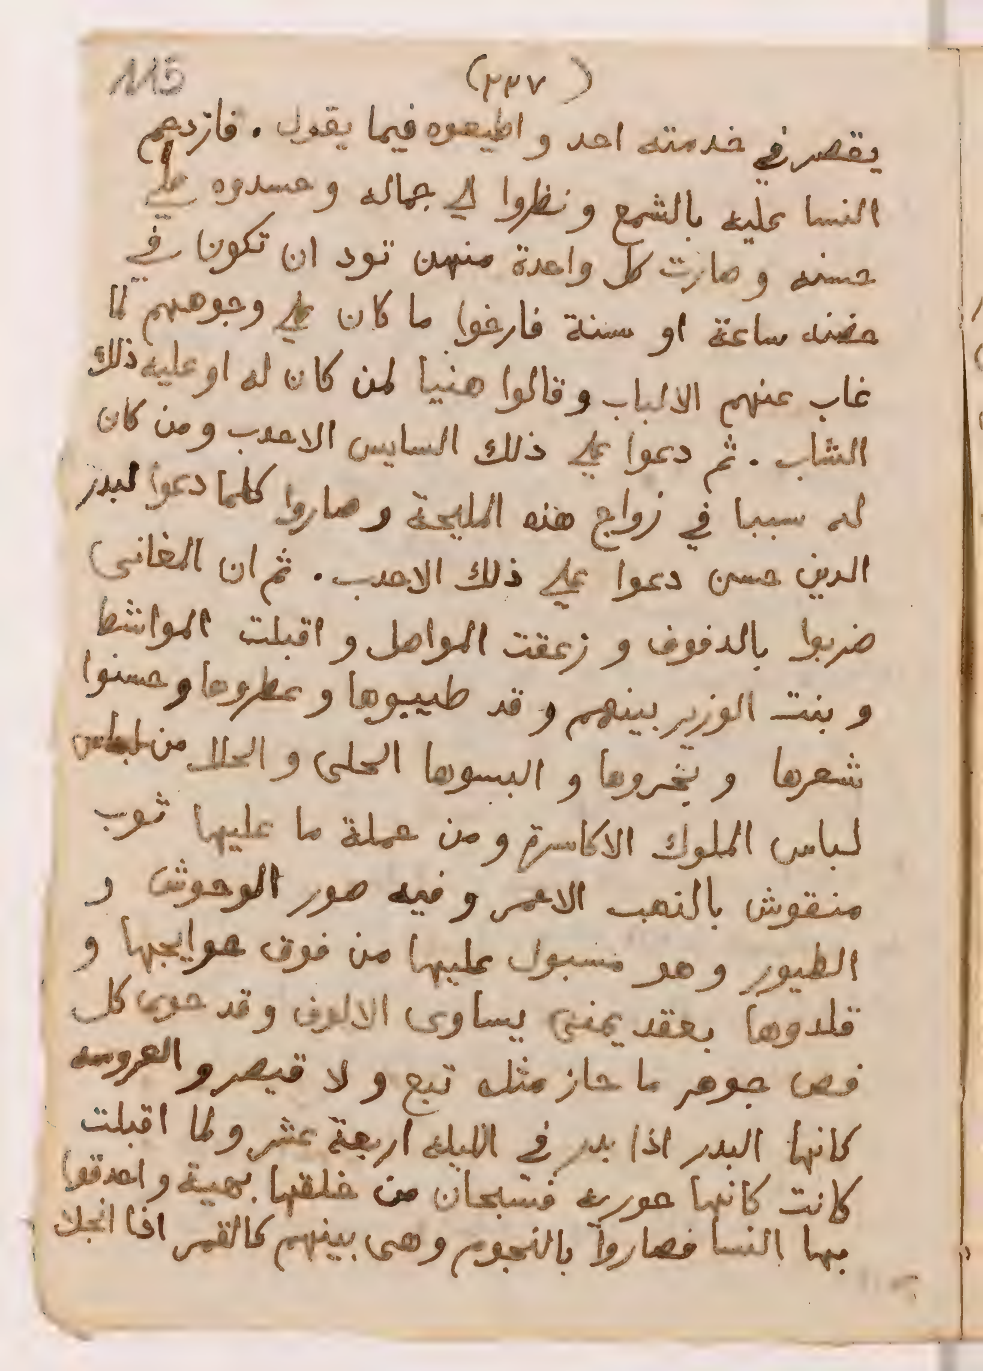 115
(٢٢٧)
يقصر في خدمته احد و اطيعوه فيما يقول . فازدحم
النسا عليه بالشمع و نظروا الي جماله وحسدوه علي
حسنه و صارت كل واحدة منهن تود ان تكون في
حضنه ساعة او سنة فارخوا ما كان علي وجوههم لما
غاب عنهم الالباب وقالوا هنيا لمن كان له او عليه ذلك
الشاب . ثم دعوا علي ذلك السايس الاحدب ومن كان
له سببا في زواج هذه المليحة وصاروا كلما دعوا لبدر
الدين حسن دعوا علي ذلك الاحدب . ثم ان المغاني
ضربوا بالدفوف و زعقت المواصل و اقبلت المواشط
و بنت الوزير بينهم وقد طيبوها و عطروها وحسنوا
شعرها و بخروها و البسوها الحلى و الحلل من لباس
لباس الملوك الاكاسرة ومن عملة ما عليها ثوب
منقوش بالذهب الاحمر وفيه صور الوحوش و
الطيور و هو مسبول عليها من فوق حوايجها و
قلدوها بعقد يمنى يساوى الالوف وقد حوى كل
فص جوهر ما حاز مثله تبع و لا قيصر و العروسه
كانها البدر اذا بدر في الليله اربعة عشر ولما اقبلت
كانت كانها حوريه فسبحان من خلقها بهية واحدقوا
بها النسا فصاروا بالنجوم وهى بينهم كالقمر اذا انجلا